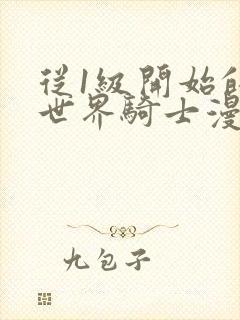 從1級開始
世界騎士漫
九包子